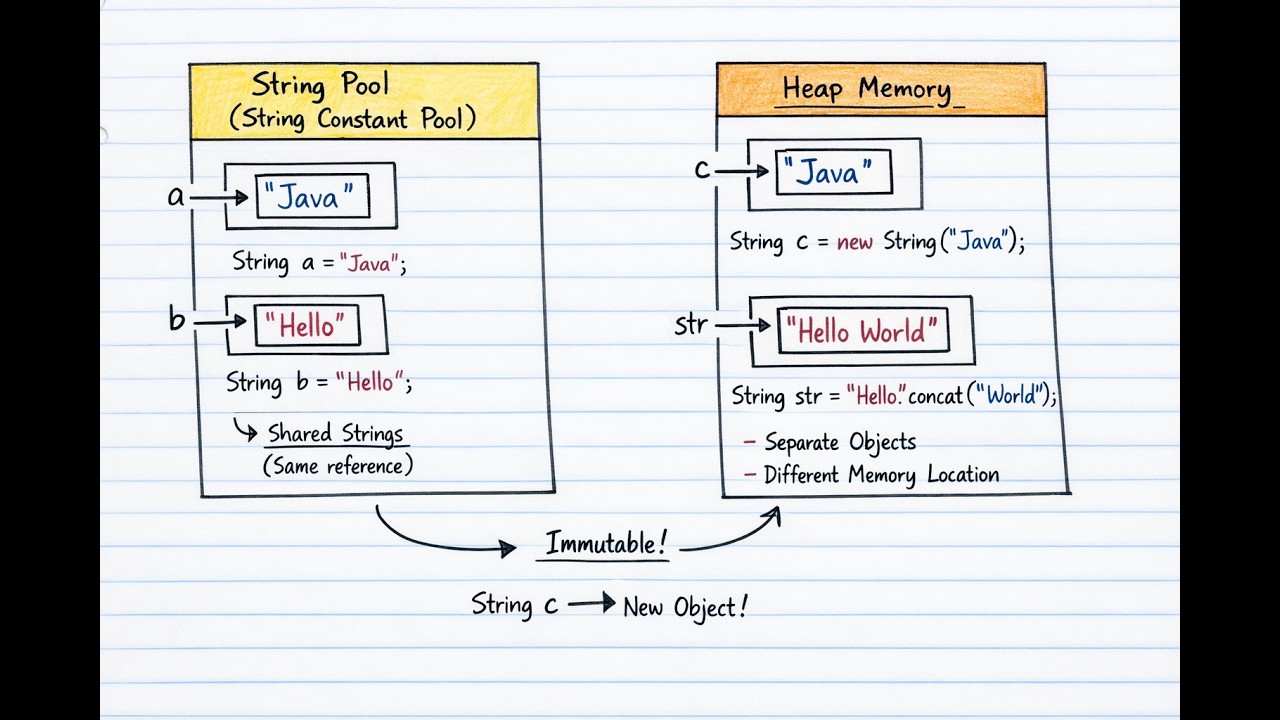 String Pool
(String Constant Pool)
a
"Java"
String a = "Java";
b
"Hello"
String b = "Hello";
Shared Strings
(Same reference)
Heap Memory
c
"Java"
String c = new String("Java");
str
"Hello World"
String str = "Hello". concat("World");
- Separate Objects
- Different Memory Location
Immutable!
String c → New Object!